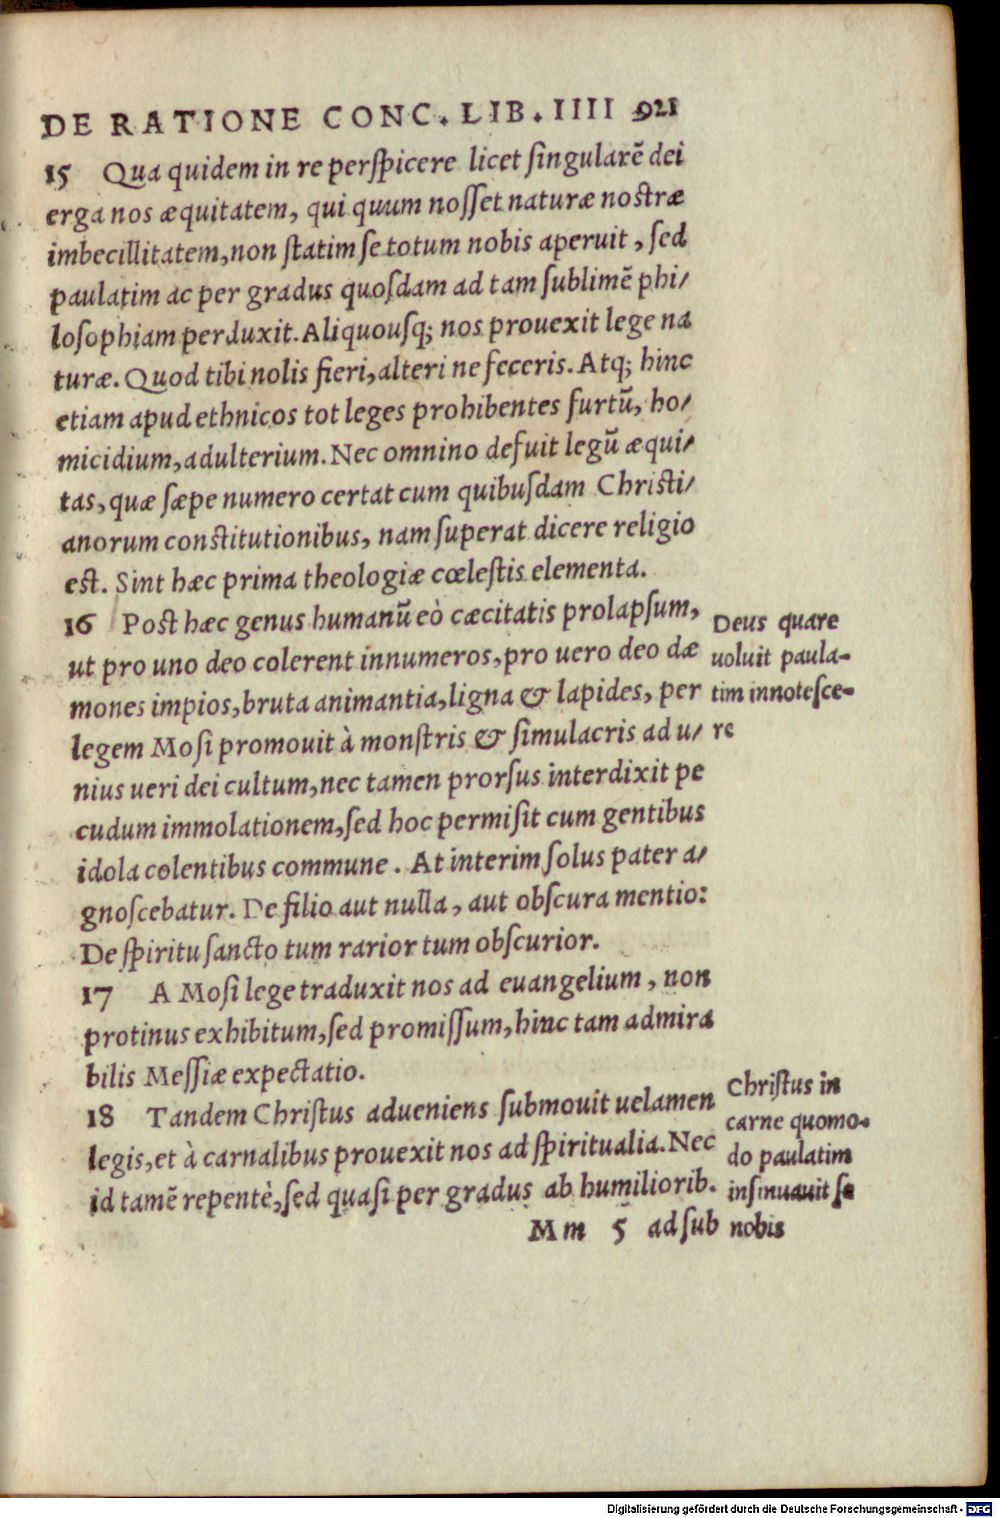 DE RATIONE CONC. LIB. IIII 921
15 Qua quidem in re perſpicere licet ſingularē dei
erga nos æquitatem, qui quum noſſet naturæ nostræ
imbecillitatem, non ſtatim ſe totum nobis aperuit, ſed
paulatim ac per gradus quoſdam ad tam ſublimē phi/
loſophiam perduxit. Aliquouſq; nos prouexit lege na
turæ. Quod tibi nolis fieri, alteri ne feceris. Atq; hinc
etiam apud ethnicos tot leges prohibentes furtū, ho/
micidium, adulterium. Nec omnino defuit legū æqui/
tas, quæ ſæpe numero certat cum quibuſdam Christi/
anorum constitutionibus, nam ſuperat dicere religio
est. Sint hæc prima theologiæ cœleſtis elementa.
16 Post hæc genus humanū eò cæcitatis prolapſum,
ut pro uno deo colerent innumeros, pro uero deo dæ
mones impios, bruta animantia, ligna & lapides, per
legem Moſi promouit à monſtris & ſimulacris ad u/
nius ueri dei cultum, nec tamen prorſus interdixit pe
cudum immolationem, ſed hoc permiſit cum gentibus
idola colentibus commune. At interim ſolus pater a/
gnoſcebatur. De filio aut nulla, aut obſcura mentio:
De ſpiritu ſancto tum rarior tum obſcurior.
Deus quare
uoluit paula-
tim innoteſce-
re
17 A Moſi lege traduxit nos ad euangelium, non
protinus exhibitum, ſed promiſſum, hinc tam admira
bilis Meſſiæ expectatio.
18 Tandem Chriſtus adueniens ſubmouit uelamen
legis, et à carnalibus prouexit nos ad ſpiritualia. Nec
id tamē repentè, ſed quaſi per gradus ab humiliorib.
Chriſtus in
carne quomo-
do paulatim
inſinuauit ſe
nobis
Mm 5 ad ſub
Digitalisierung gefördert durch die Deutsche Forschungsgemeinschaft - DFG